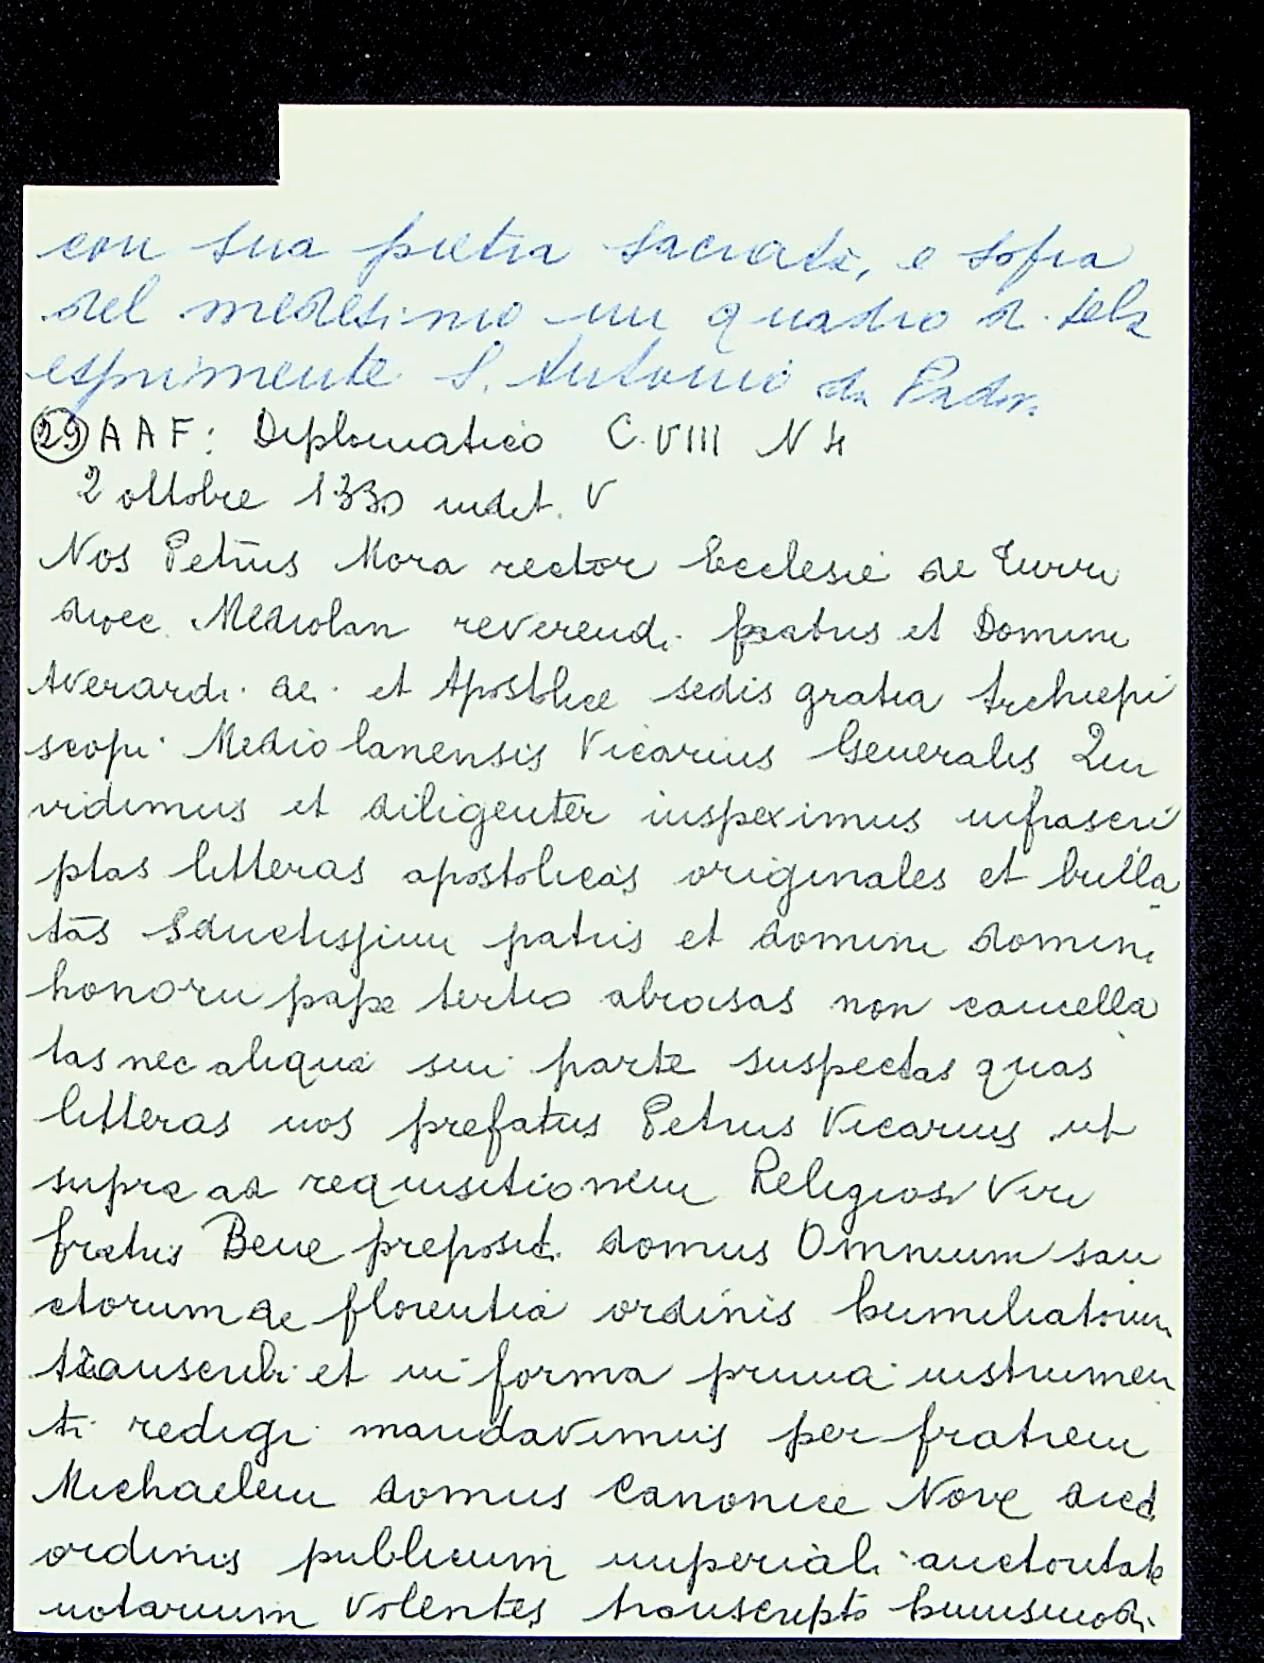 con sua pietra sacrata, e sopra
del medesimo un quadro di tela
esprimente S. Antonio da Padov.
(29) A A F: Diplomatico C. VIII N 4
2 ottobre 1330 indct. V
Nos Petrus Mora rector Ecclesie de Turri
dioec. Mediolan reverendi patris et Domini
Averardi dei et Apostolice sedis gratia Archiepi
scopi Mediolanensis Vicarius Generalis
vidimus et diligenter inspeximus infrascri
ptas litteras apostolicas originales et bulla
tas Sanctissimi patris et domini domini
honorii pape tertio abrasas non cancella
tas nec aliqua sui parte suspectas quas
litteras nos prefatus Petrus Vicarius ut
supra ad requisitionem Religiosi Viri
fratris Bene preposit. domus Omnium san
ctorum de florentia ordinis humiliatorum
transcribi et in forma prima instrumen
ti redigi mandavimus per fratrem
Michaelem domus Canonice Nove dicti
ordinis publicum imperiali auctoritate
notarium volentes transcripto huiusmodi